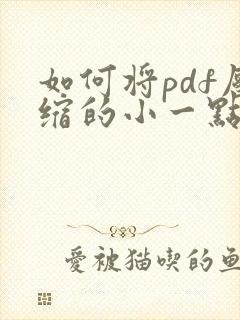 如何将pdf压
缩的小一點
愛被猫喫的鱼